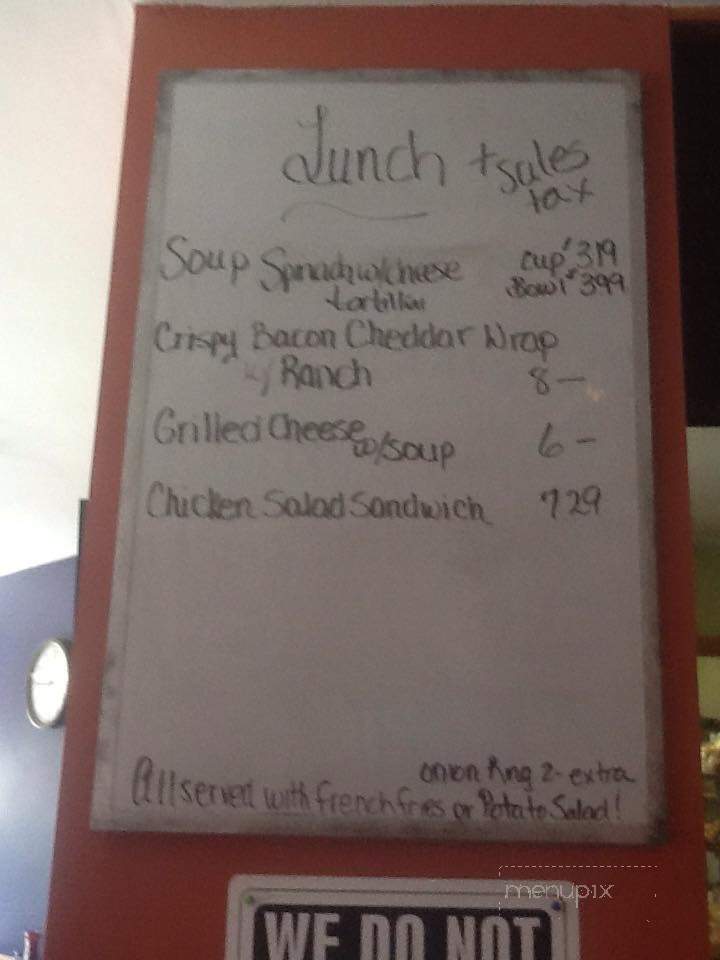 Lunch + sales tax
Soup Spinach w/cheese tortillini cup $319
Bowl $399
Crispy Bacon Cheddar Wrap
w/ Ranch 8—
Grilled Cheese w/soup 6—
Chicken Salad Sandwich 729
onion Ring 2- extra
All served with french fries or Potato Salad!
menupix
WE DO NOT